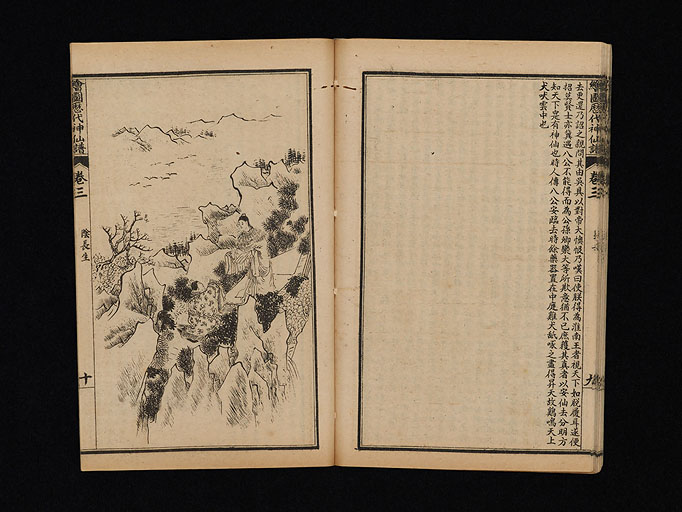 繪圖歷代神仙譜
卷三
九
去更還乃詔之親問其由吳具以對帝大懊恨乃嘆曰使朕得為淮南王者視天下如脫屣耳遂便
招募賢士亦冀遇八公不能得而為公孫卿欒大等所欺意猶不已庶獲其真者以安仙去分明方
知天下實有神仙也時人傳八公安臨去時餘藥器置在中庭雞犬舐啄之盡得昇天故鷄鳴天上
犬吠雲中也
繪圖歷代神仙譜
卷三
陰長生
十